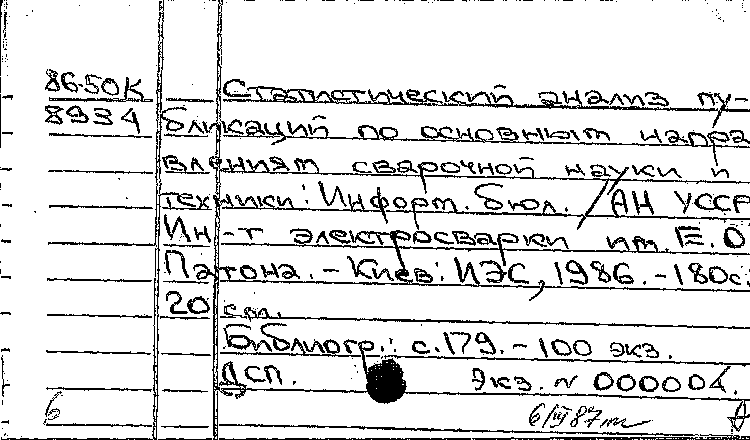 86-50К Статистический анализ пу-
8934 бликаций по основным напра
влениям сварочной науки и
техники: Информ. бюл. / АН УССР
Ин-т электросварки им. Е. О
Патона. - Киев: ИЭС, 1986. - 180с.
20 см.
Библиогр.: с.179. - 100 экз.
ДСП. Экз. N 000004.
6 6/III 87